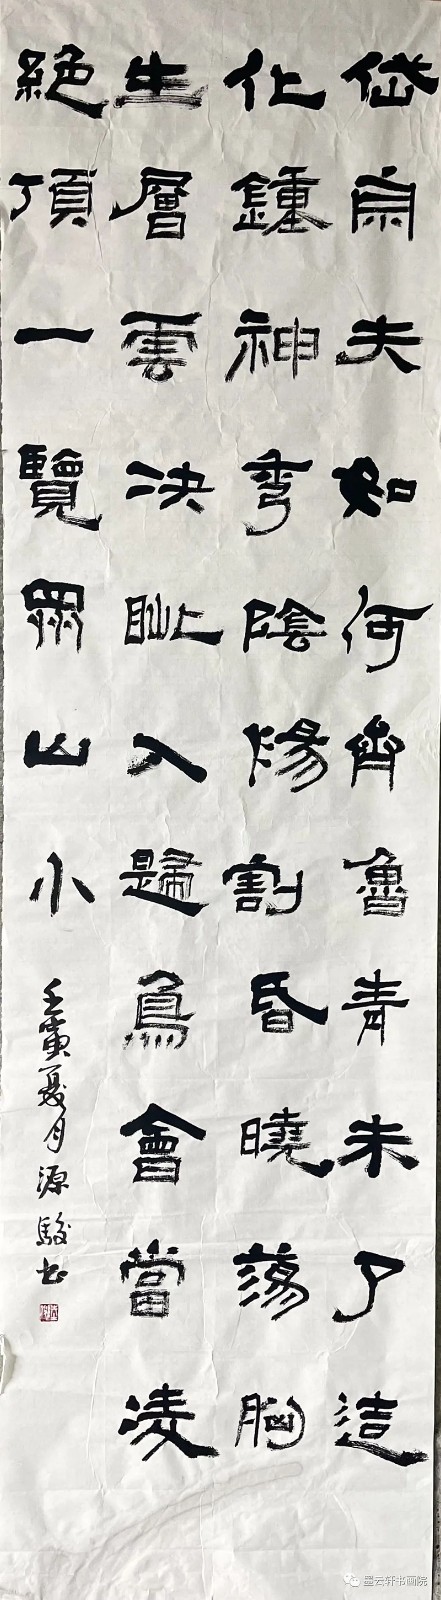 岱宗夫如何齊魯青未了造
化鍾神秀陰陽割昏曉蕩胸
生層雲決眦入歸鳥會當凌
絕頂一覽眾山小
壬寅夏月源駿書
墨云轩书画院